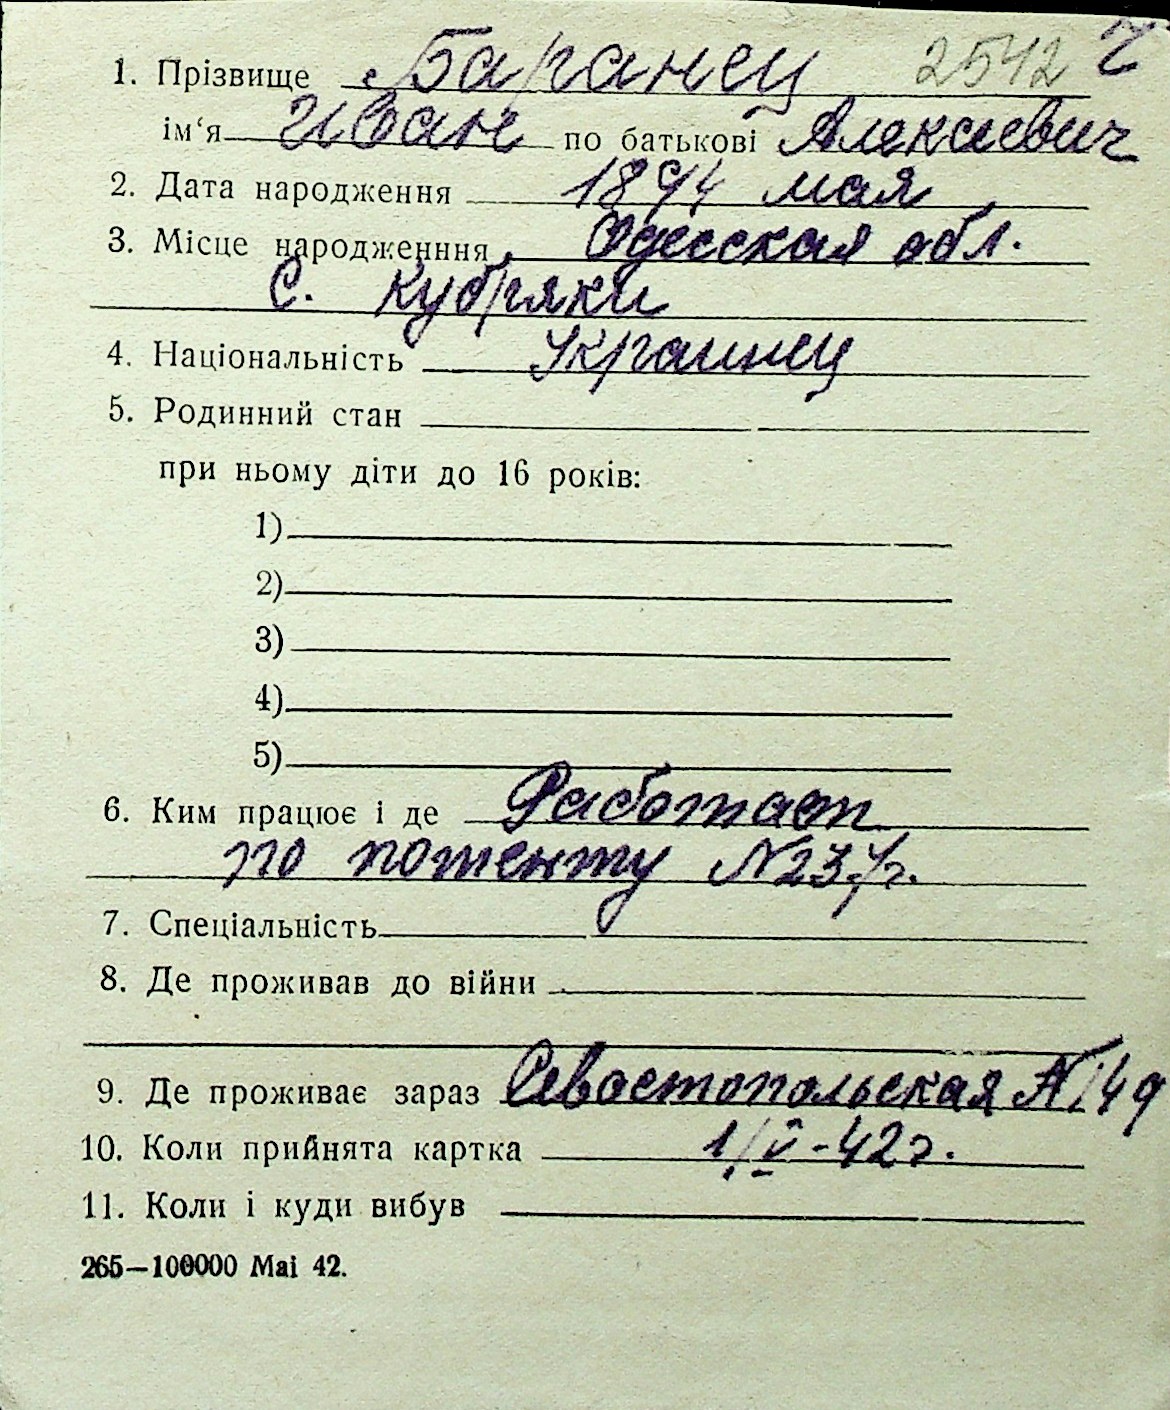 1. Прізвище Баранец 2542
ім'я Иван по батькові Алексеевич
2. Дата народження 1894 мая
3. Місце народженння Одесская обл.
С. Кубряки
4. Національність Украинец
5. Родинний стан
при ньому діти до 16 років:
1)
2)
3)
4)
5)
6. Ким працює і де Работает
по потенту №
7. Спеціальність
8. Де проживав до війни
9. Де проживає зараз Севостопольская № 49
10. Коли прийнята картка 1/V-42г.
11. Коли і куди вибув
265—100000 Mai 42.